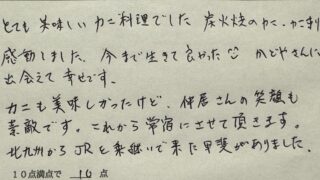 とても 美味しい カニ料理でした 炭火焼のカニ、カニ刺
感動しました。今まで生きて良かった☺ かどやさんに
出会えて 幸せです。
カニも美味しかったけど、仲居さんの笑顔も
素敵です。これから常宿にさせて頂きます。
北九州からJRを乗継いで来た甲斐がありました。
10点満点で 10 点